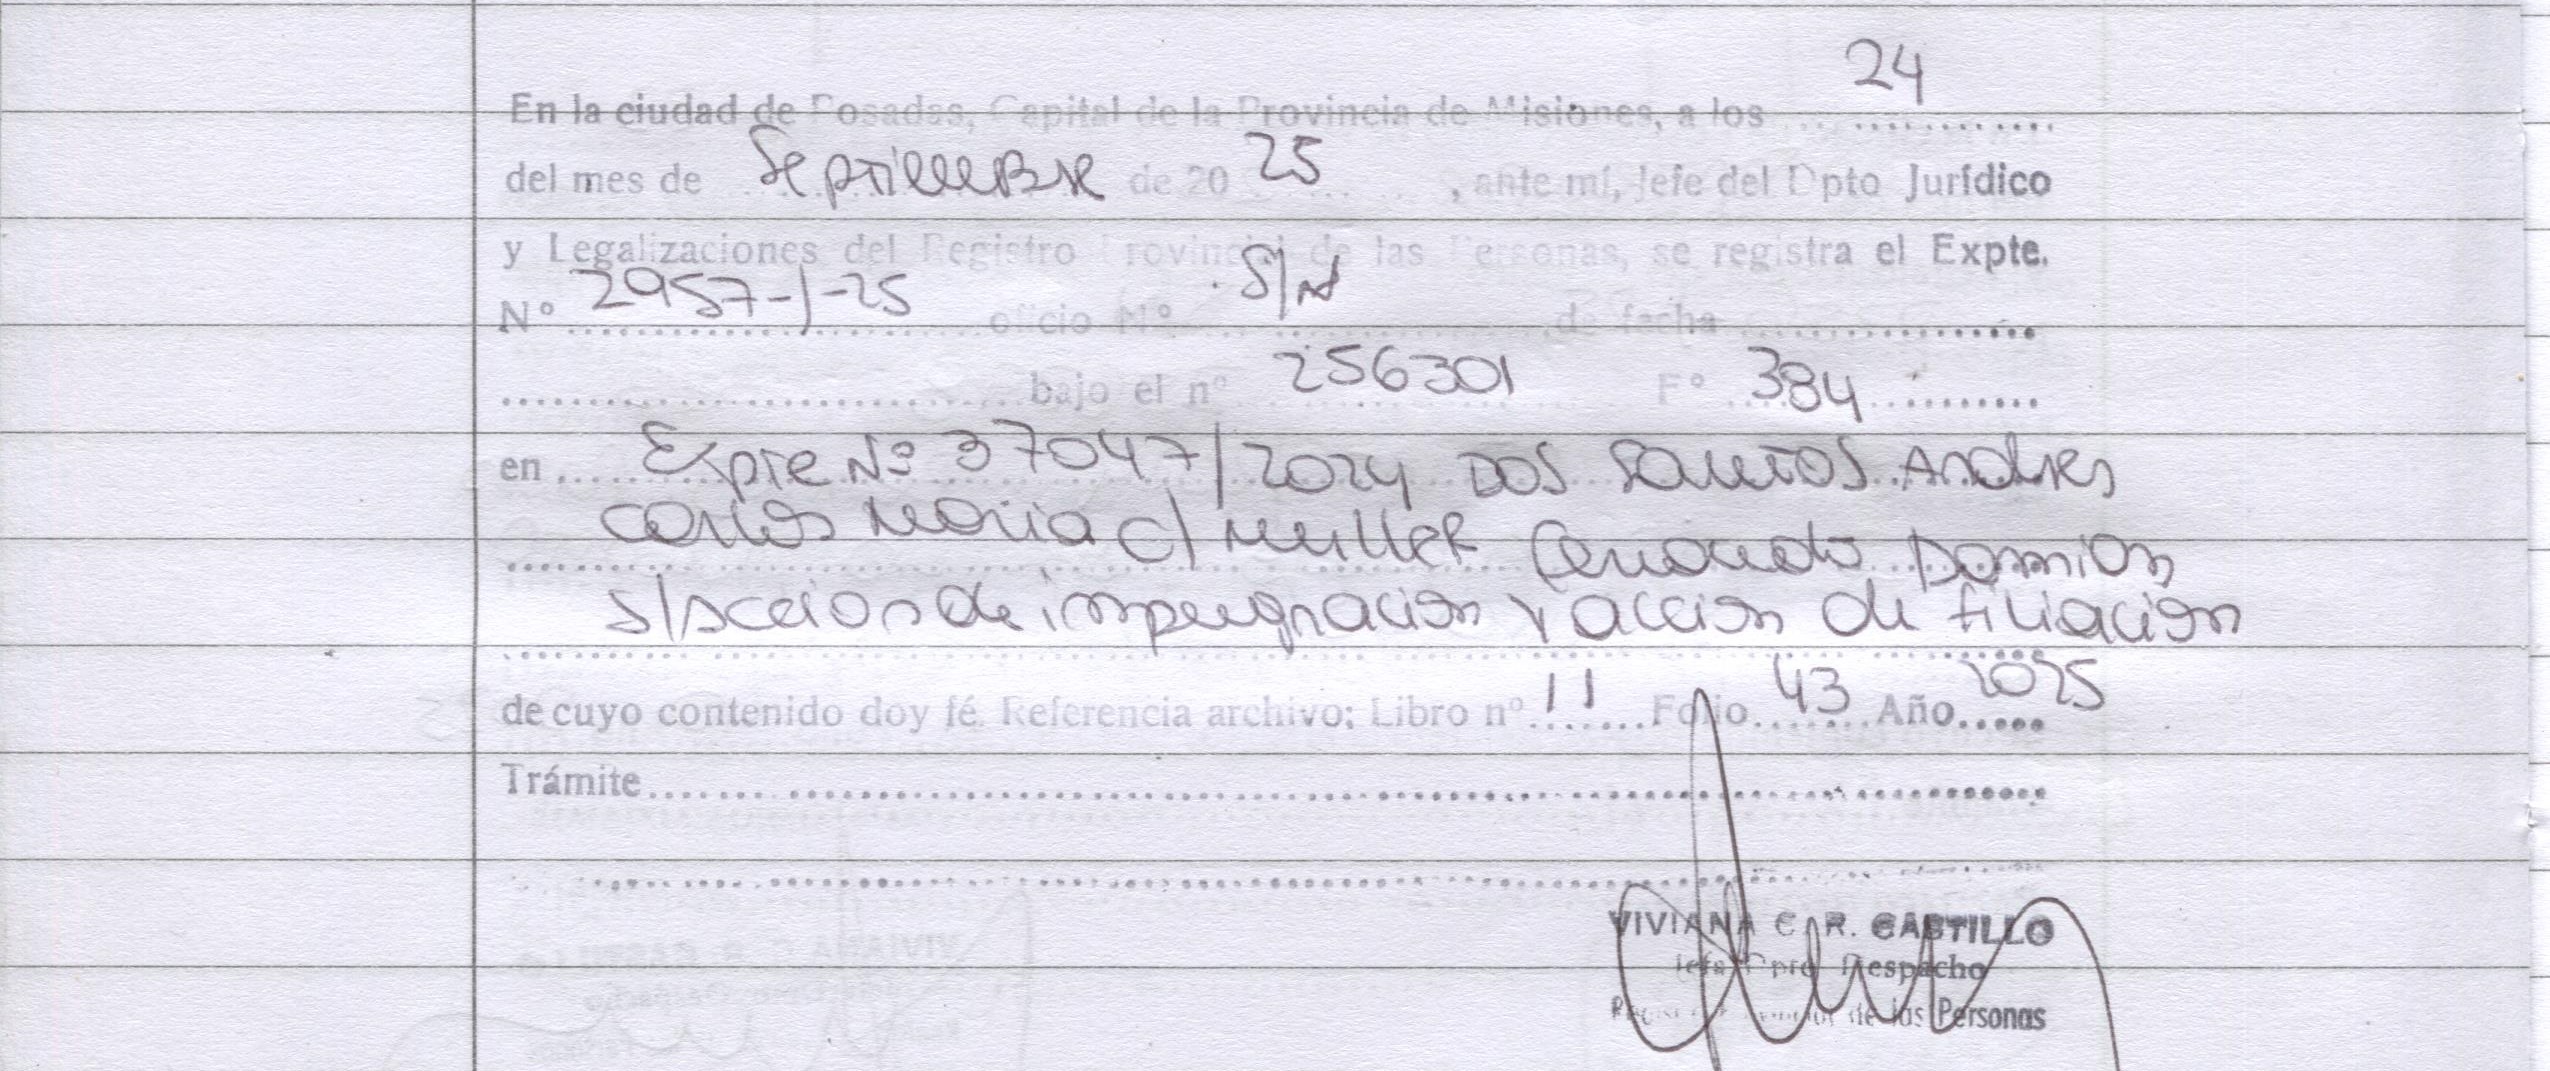 24
En la ciudad de Posadas, Capital de la Provincia de Misiones, a los ...............
del mes de Septiembre de 20 25 , ante mí, Jefe del Dpto Jurídico
y Legalizaciones del Registro Provincial de las Personas, se registra el Expte.
Nº 2957-J-25 oficio Nº S/N de fecha ...............
............... bajo el nº 256301 Fº 384
en Expte Nº 37047/2024 DOS SANTOS Andres
Carlos Maria c/ Muller Fernando Damian
s/ Accion de impugnacion y accion de filiacion
de cuyo contenido doy fé. Referencia archivo: Libro nº 11 Folio 43 Año 2025
Trámite ...............
VIVIANA C. R. CASTILLO
Jefa Dpto Despacho
Registro Provincial de las Personas